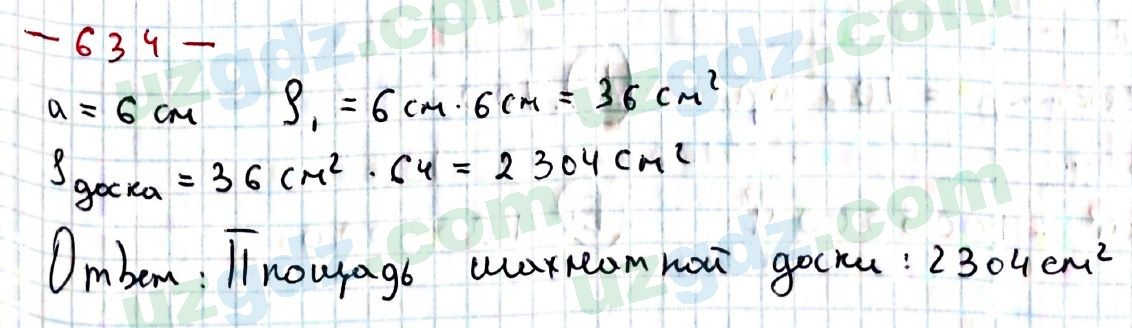 - 634 -
a = 6 см S₁ = 6 см · 6 см = 36 см²
S доска = 36 см² · 64 = 2 304 см²
Ответ: Площадь шахматной доски: 2304 см²
uzgdz.com
uzgdz.com
uzgdz.com
uzgdz.com